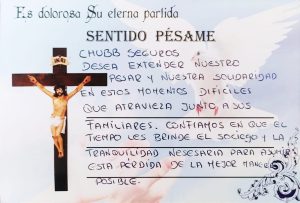 Es dolorosa Su eterna partida
SENTIDO PÉSAME
CHUBB SEGUROS
DESEA EXTENDER NUESTRO
PESAR Y NUESTRA SOLIDARIDAD
EN ESTOS MOMENTOS DIFÍCILES
QUE ATRAVIEZA JUNTO A SUS
FAMILIARES. CONFIAMOS EN QUE EL
TIEMPO LES BRINDE EL SOCIEGO Y LA
TRANQUILIDAD NESESARIA PARA ASUMIR
ESTA PÉRDIDA DE LA MEJOR MANERA
POSIBLE.